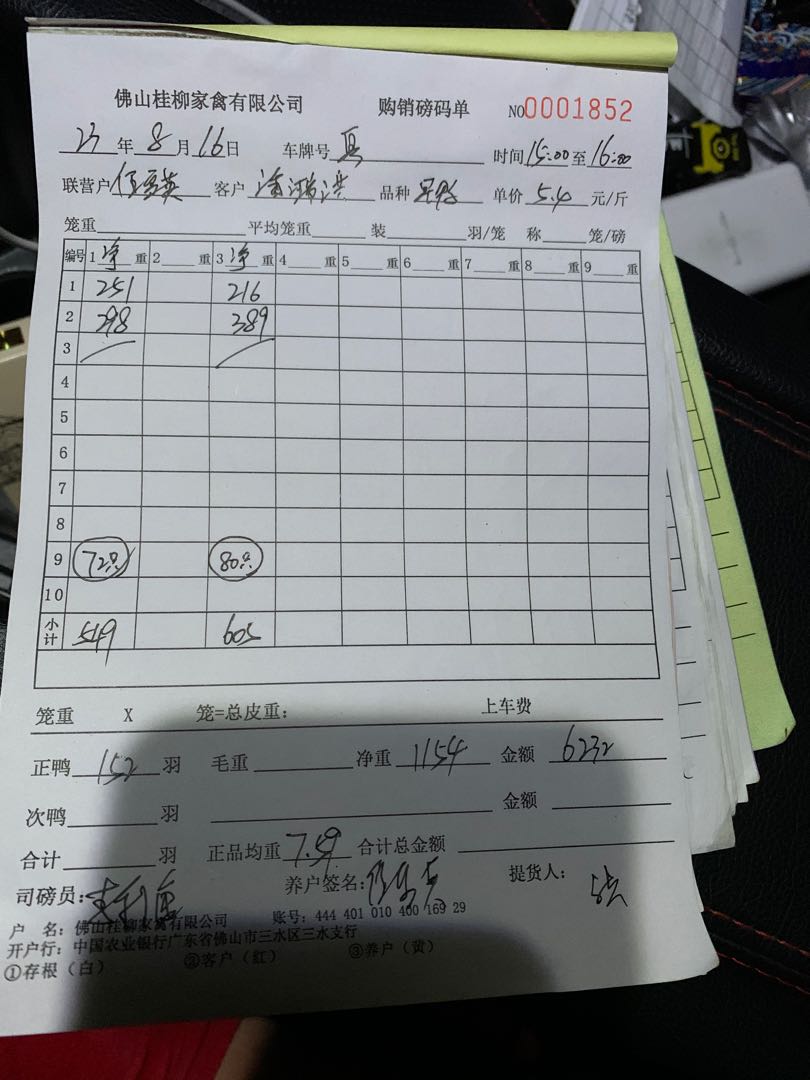 佛山桂柳家禽有限公司 购销磅码单 NO0001852
23年8月16日 车牌号 时间15:00至16:00
联营户 客户 品种 单价5.4元/斤
笼重 平均笼重 装 羽/笼 称 笼/磅
编号 1净重 2 重 3净重 4 重 5 重 6 重 7 重 8 重 9 重
1 251 216
2 298 389
3
4
5
6
7
8
9 72只 80只
10
小计 549 605
笼重 X 笼=总皮重: 上车费
正鸭152羽 毛重 净重1154 金额6232
次鸭 羽 金额
合计 羽 正品均重7.59 合计总金额
司磅员: 养户签名: 提货人:
户 名: 佛山桂柳家禽有限公司 账号: 444 401 010 400 169 29
开户行: 中国农业银行广东省佛山市三水区三水支行
①存根(白) ②客户(红) ③养户(黄)